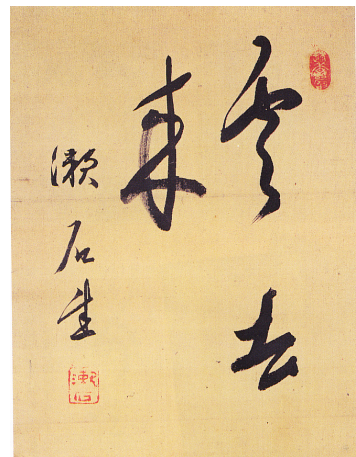 雲去
来
漱石生
漱石